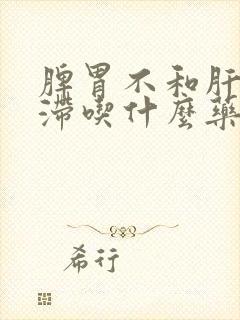 脾胃不和肝
滞喫什麼藥
希行